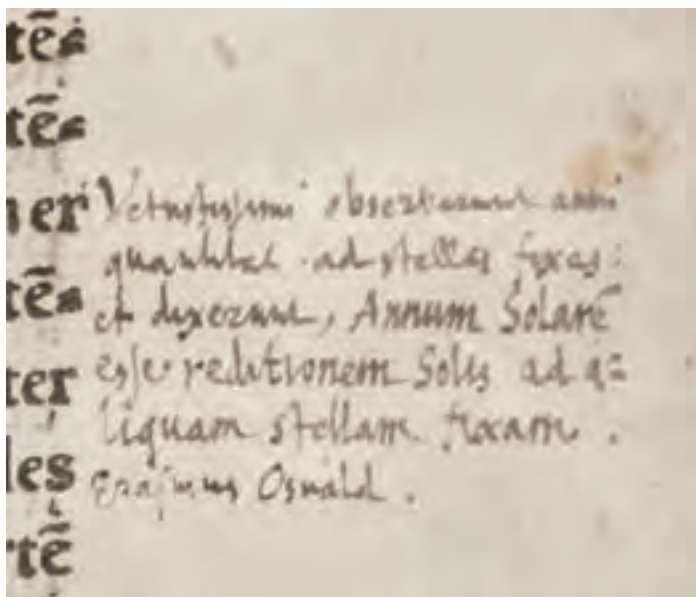 tēs
tēs
er Vetustissimi obseruarunt anni
quantitatē ad stellas fixas:
tēs et dixerunt, Annum Solarē
ter esse reditionem Solis ad a=
liquam stellam fixam.
les Erasmus Osuald.
rtē